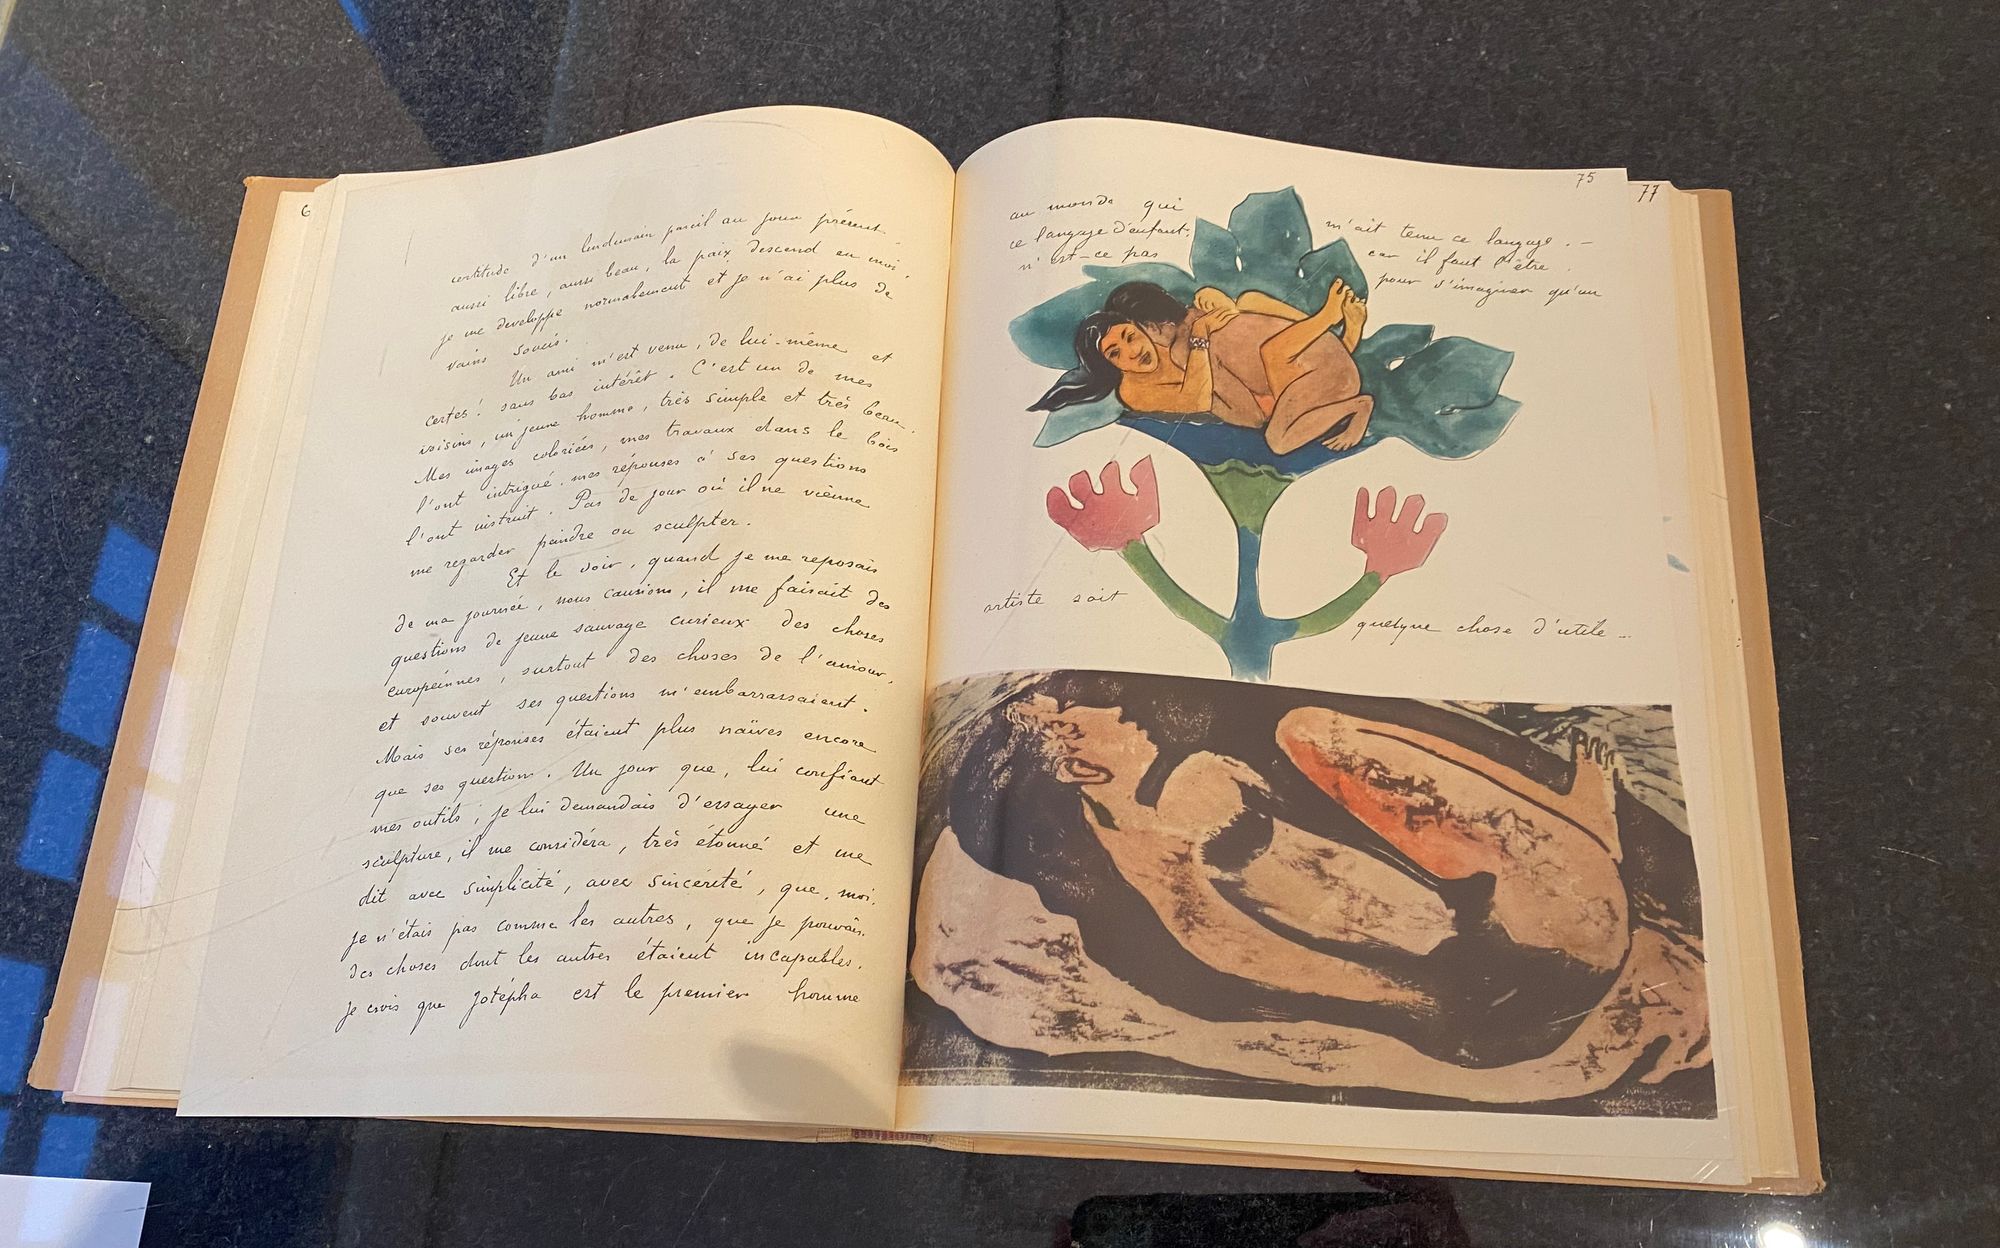 6
certitude d'un lendemain pareil au jour présent
aussi libre, aussi beau, la paix descend en moi,
je me développe normalement et je n'ai plus de
vains soucis.
Un ami m'est venu, de lui-même et
certes! sans bas intérêt. C'est un de mes
voisins, un jeune homme, très simple et très beau.
Mes images coloriées, mes travaux dans le bois
l'ont intrigué. mes réponses à ses questions
l'ont instruit. Pas de jour où il ne vienne
me regarder peindre ou sculpter.
Et le soir, quand je me reposais
de ma journée, nous causions, il me faisait des
questions de jeune sauvage curieux des choses
européennes, surtout des choses de l'amour,
et souvent ses questions m'embarrassaient.
Mais ses réponses étaient plus naïves encore
que ses questions. Un jour que, lui confiant
mes outils, je lui demandais d'essayer une
sculpture, il me considéra, très étonné et me
dit avec simplicité, avec sincérité, que, moi,
je n'étais pas comme les autres, que je pouvais
des choses dont les autres étaient incapables.
Je crois que Jotépha est le premier homme
75
77
au monde qui m'ait tenu ce langage. -
ce langage d'enfant, car il faut l'être,
n'est-ce pas pour s'imaginer qu'un
artiste soit quelque chose d'utile -